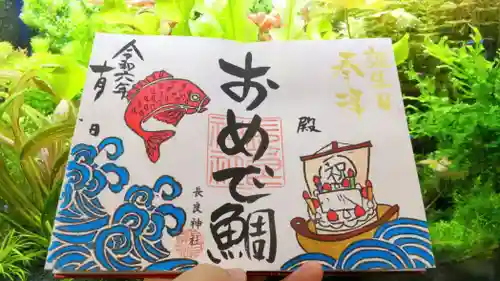 誕生日
奉拝
殿
おめで鯛
長良神社
令和六年
月
日